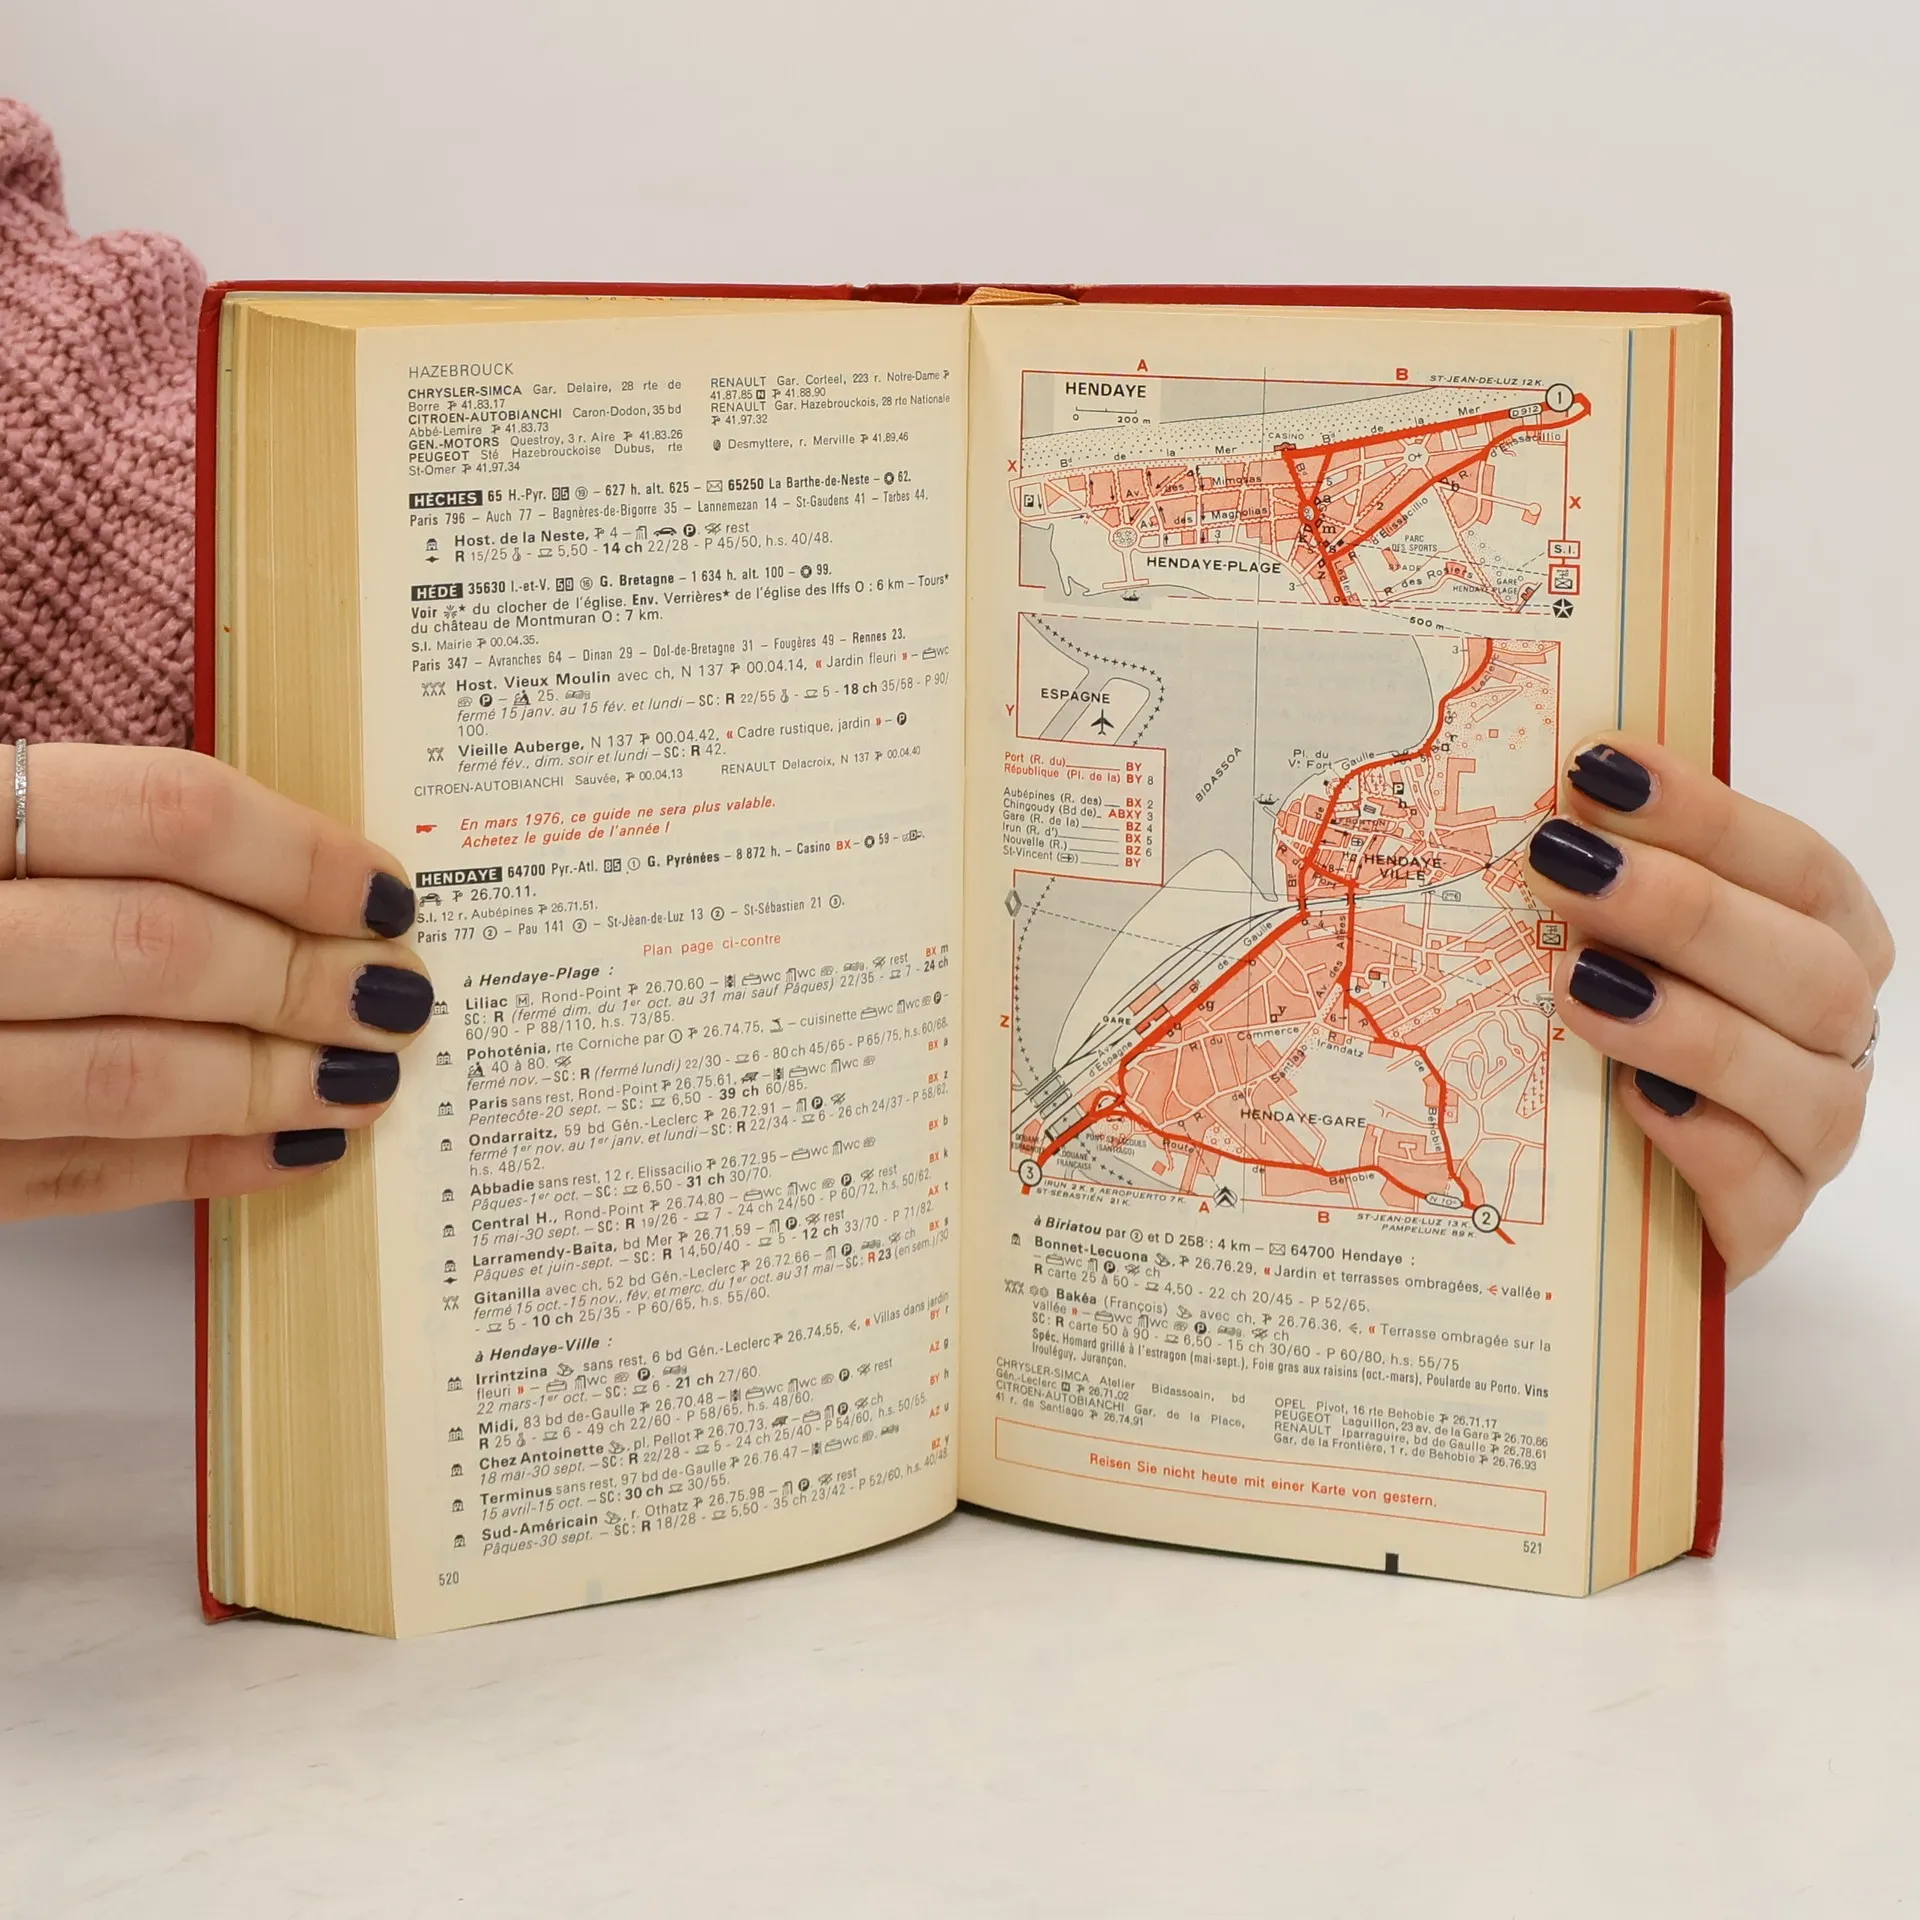 HAZEBROUCK
CHRYSLER-SIMCA Gar. Delaire, 28 rte de
Borre 41.83.17
CITROEN-AUTOBIANCHI Caron-Dodon, 35 bd
Abbé-Lemire 41.83.73
GEN.-MOTORS Questroy, 3 r. Aire 41.83.26
PEUGEOT Sté Hazebrouckoise Dubus, rte
St-Omer 41.97.34
RENAULT Gar. Corteel, 223 r. Notre-Dame
41.87.85 N 41.88.90
RENAULT Gar. Hazebrouckois, 28 rte Nationale
41.97.32
Desmyttere, r. Merville 41.89.46
HÈCHES 65 H.-Pyr. 85 ⑲ – 627 h. alt. 625 – 65250 La Barthe-de-Neste – 62.
Paris 796 – Auch 77 – Bagnères-de-Bigorre 35 – Lannemezan 14 – St-Gaudens 41 – Tarbes 44.
Host. de la Neste, 4 – P. rest
R 15/25 - 5,50 - 14 ch 22/28 - P 45/50, h.s. 40/48.
HÉDÉ 35630 I.-et-V. 59 ⑯ G. Bretagne – 1 634 h. alt. 100 – 99.
Voir * du clocher de l'église. Env. Verrières* de l'église des Iffs O : 6 km – Tours*
du château de Montmuran O : 7 km.
S.I. Mairie 00.04.35.
Paris 347 – Avranches 64 – Dinan 29 – Dol-de-Bretagne 31 – Fougères 49 – Rennes 23.
Host. Vieux Moulin avec ch, N 137 00.04.14, « Jardin fleuri » – wc
P – 25.
fermé 15 janv. au 15 fév. et lundi – SC : R 22/55 - 5 - 18 ch 35/58 - P 90/
100.
Vieille Auberge, N 137 00.04.42, « Cadre rustique, jardin » – P
fermé fév., dim. soir et lundi – SC : R 42.
CITROEN-AUTOBIANCHI Sauvée, 00.04.13 RENAULT Delacroix, N 137 00.04.40
En mars 1976, ce guide ne sera plus valable.
Achetez le guide de l'année !
HENDAYE 64700 Pyr.-Atl. 85 ① G. Pyrénées – 8 872 h. – Casino BX – 59 –
26.70.11.
S.I. 12 r. Aubépines 26.71.51.
Paris 777 ② – Pau 141 ② – St-Jean-de-Luz 13 ② – St-Sébastien 21 ③.
Plan page ci-contre
à Hendaye-Plage :
Liliac M, Rond-Point 26.70.60 – wc wc rest BX m
SC : R (fermé dim. du 1er oct. au 31 mai sauf Pâques) 22/35 - 7 - 24 ch
60/90 - P 88/110, h.s. 73/85.
Pohoténia, rte Corniche par ① 26.74.75, – cuisinette wc wc P –
40 à 80.
fermé nov. – SC : R (fermé lundi) 22/30 - 6 - 80 ch 45/65 - P 65/75, h.s. 60/68.
Paris sans rest, Rond-Point 26.75.61, – wc wc BX a
Pentecôte-20 sept. – SC : 6,50 - 39 ch 60/85.
Ondarraitz, 59 bd Gén.-Leclerc 26.72.91 – P. BX z
fermé 1er nov. au 1er janv. et lundi – SC : R 22/34 - 6 - 26 ch 24/37 - P 58/62,
h.s. 48/52.
Abbadie sans rest, 12 r. Elissacilio 26.72.95 – wc wc BX b
Pâques-1er oct. – SC : 6,50 - 31 ch 30/70.
Central H., Rond-Point 26.74.80 – wc wc P. rest BX k
15 mai-30 sept. – SC : R 19/26 - 7 - 24 ch 24/50 - P 60/72, h.s. 50/62.
Larramendy-Baïta, bd Mer 26.71.59 – P. rest AX t
Pâques et juin-sept. – SC : R 14,50/40 - 5 - 12 ch 33/70 - P 71/82.
Gitanilla avec ch, 52 bd Gén.-Leclerc 26.72.66 – P. ch BX s
fermé 15 oct.-15 nov., fév. et merc. du 1er oct. au 31 mai – SC : R 23 (en sem.)/30
- 5 - 10 ch 25/35 - P 60/65, h.s. 55/60.
à Hendaye-Ville :
Irrintzina sans rest, 6 bd Gén.-Leclerc 26.74.55, « Villas dans jardin
fleuri » – wc P. BY r
22 mars-1er oct. – SC : 6 - 21 ch 27/60.
Midi, 83 bd de-Gaulle 26.70.48 – wc wc P. rest AZ g
R 25 - 6 - 49 ch 22/60 - P 58/65, h.s. 48/60.
Chez Antoinette, pl. Pellot 26.70.73, – P. ch BY h
18 mai-30 sept. – SC : R 22/28 - 5 - 24 ch 25/40 - P 54/60, h.s. 50/55.
Terminus sans rest, 97 bd de-Gaulle 26.76.47 – wc AZ u
15 avril-15 oct. – SC : 30 ch 30/55.
Sud-Américain, r. Othatz 26.75.98 – P. rest BZ y
Pâques-30 sept. – SC : R 18/28 - 5,50 - 35 ch 23/42 - P 52/60, h.s. 40/48.
520
A B
ST-JEAN-DE-LUZ 12 K.
1
HENDAYE
0 200 m
D 912
CASINO
Bd de la Mer
Bd de la Mer
X X
Av. des Mimosas
Av. des Magnolias
R. d'Elissacilio
HENDAYE-PLAGE
PARC DES SPORTS
STADE
R. des Rosiers
GARE HENDAYE PLAGE
S.I.
500 m
ESPAGNE
Y
BIDASSOA
Pl. du Vx Fort
Port (R. du) BY
République (Pl. de la) BY 8
Aubépines (R. des) BX 2
Chingoudy (Bd de) ABXY 3
Gare (R. de la) BZ 4
Irun (R. d') BX 5
Nouvelle (R.) BZ 6
St-Vincent BY
HENDAYE-VILLE
GARE
Z Z
Av. d'Espagne
R. du Commerce
Irandatz
Santiago
HENDAYE-GARE
DOUANE FRANÇAISE
Route de Béhobie
3
IRUN 2 K.5 AEROPUERTO 7 K.
ST-SÉBASTIEN 21 K.
A B
N 10
2
ST-JEAN-DE-LUZ 13 K.
PAMPELUNE 89 K.
à Biriatou par ② et D 258 : 4 km – 64700 Hendaye :
Bonnet-Lecuona, 26.76.29, « Jardin et terrasses ombragées, vallée »
– wc P. ch
R carte 25 à 50 - 4,50 - 22 ch 20/45 - P 52/65.
Bakéa (François) avec ch, 26.76.36, « Terrasse ombragée sur la
vallée » – wc wc P. ch
SC : R carte 50 à 90 - 6,50 - 15 ch 30/60 - P 60/80, h.s. 55/75
Spéc. Homard grillé à l'estragon (mai-sept.), Foie gras aux raisins (oct.-mars), Poularde au Porto. Vins
Irouléguy, Jurançon.
CHRYSLER-SIMCA Atelier Bidassoain, bd
Gén.-Leclerc N 26.71.02
CITROEN-AUTOBIANCHI Gar. de la Place,
41 r. de Santiago 26.74.91
OPEL Pivot, 16 rte Behobie 26.71.17
PEUGEOT Laguillon, 23 av. de la Gare 26.70.86
RENAULT Iparraguire, bd de Gaulle 26.78.61
Gar. de la Frontière, 1 r. de Behobie 26.76.93
Reisen Sie nicht heute mit einer Karte von gestern.
521